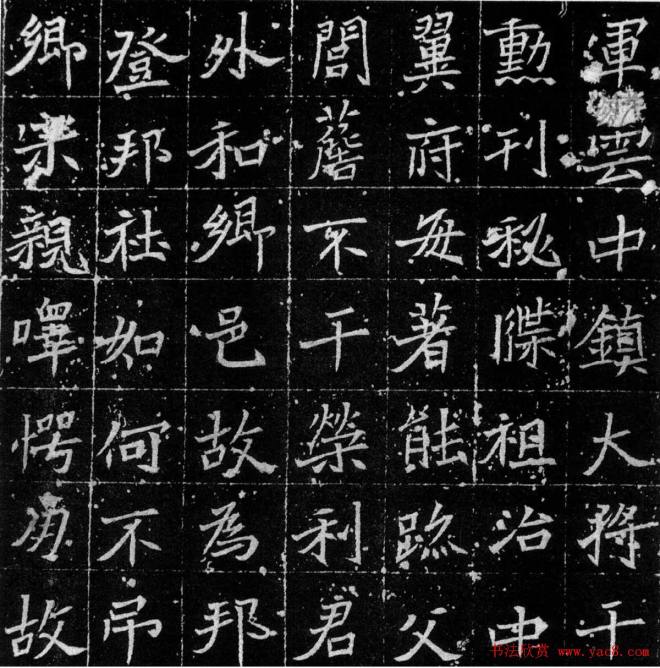 軍雲中鎮大將干
勳刊秘牒祖冶中
翼府每著能跡父
閭薝不干榮利君
外和鄉邑故為邦
登邦社如何不弔
鄉宗親愕故
书法欣赏 www.yac8.com